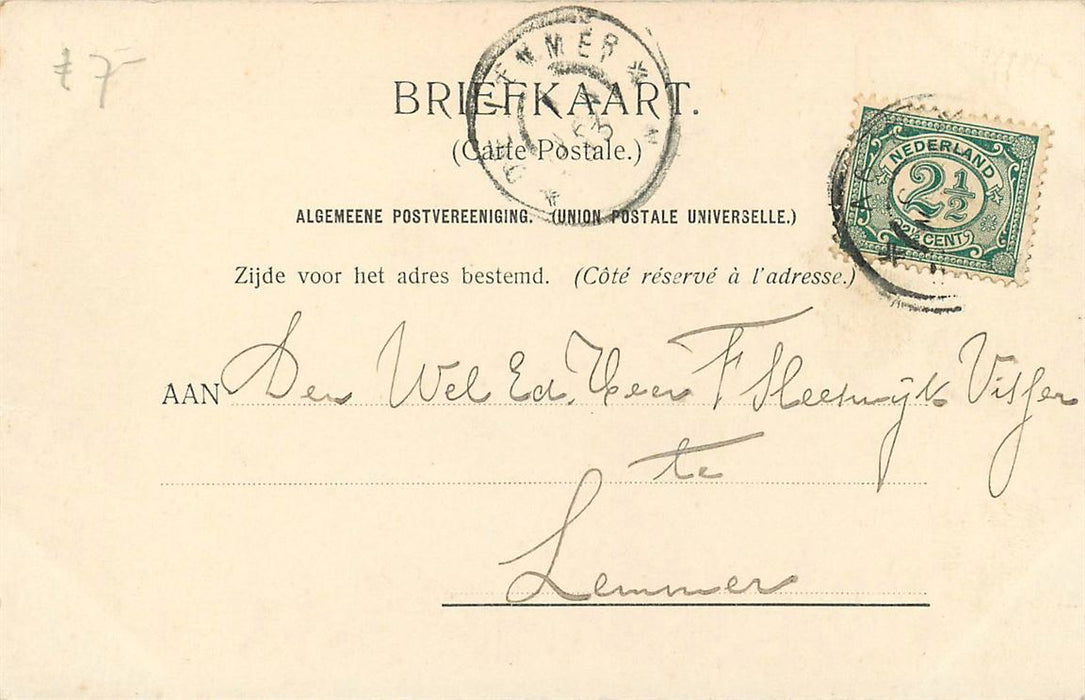 7-
DE LEMMER
BRIEFKAART.
(Carte Postale.)
NEDERLAND
2½
2½ CENT
ALGEMEENE POSTVEREENIGING. (UNION POSTALE UNIVERSELLE.)
Zijde voor het adres bestemd. (Côté réservé à l'adresse.)
AAN Den Wel Ed. Heer F Sleeswijk Visser
te
Lemmer